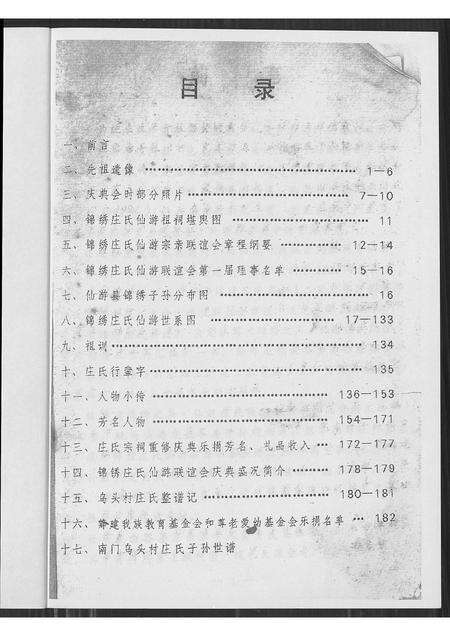 目 录
一、前言
二、先祖遗像 ………… 1—6
三、庆典会时部分照片 ………… 7—10
四、锦绣庄氏仙游祖祠堪舆图 ………… 11
五、锦绣庄氏仙游宗亲联谊会章程纲要 ………… 12—14
六、锦绣庄氏仙游联谊会第一届理事名单 ………… 15—16
七、仙游县锦绣子孙分布图 ………… 16
八、锦绣庄氏仙游世系图 ………… 17—133
九、祖训 ………… 134
十、庄氏行辈字 ………… 135
十一、人物小传 ………… 136—153
十二、芳名人物 ………… 154—171
十三、庄氏宗祠重修庆典乐捐芳名、礼品收入 … 172—177
十四、锦绣庄氏仙游联谊会庆典盛况简介 ………… 178—179
十五、乌头村庄氏整谱记 ………… 180—181
十六、筹建我族教育基金会和尊老爱幼基金会乐捐名单 … 182
十七、南门乌头村庄氏子孙世谱